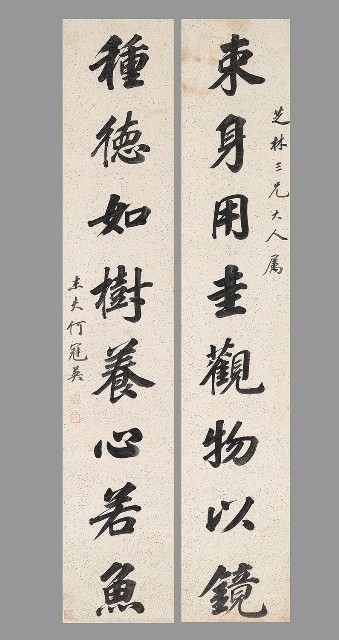 芝林三兄大人屬
束身用圭觀物以鏡
種德如樹養心若魚
杰夫何冠英